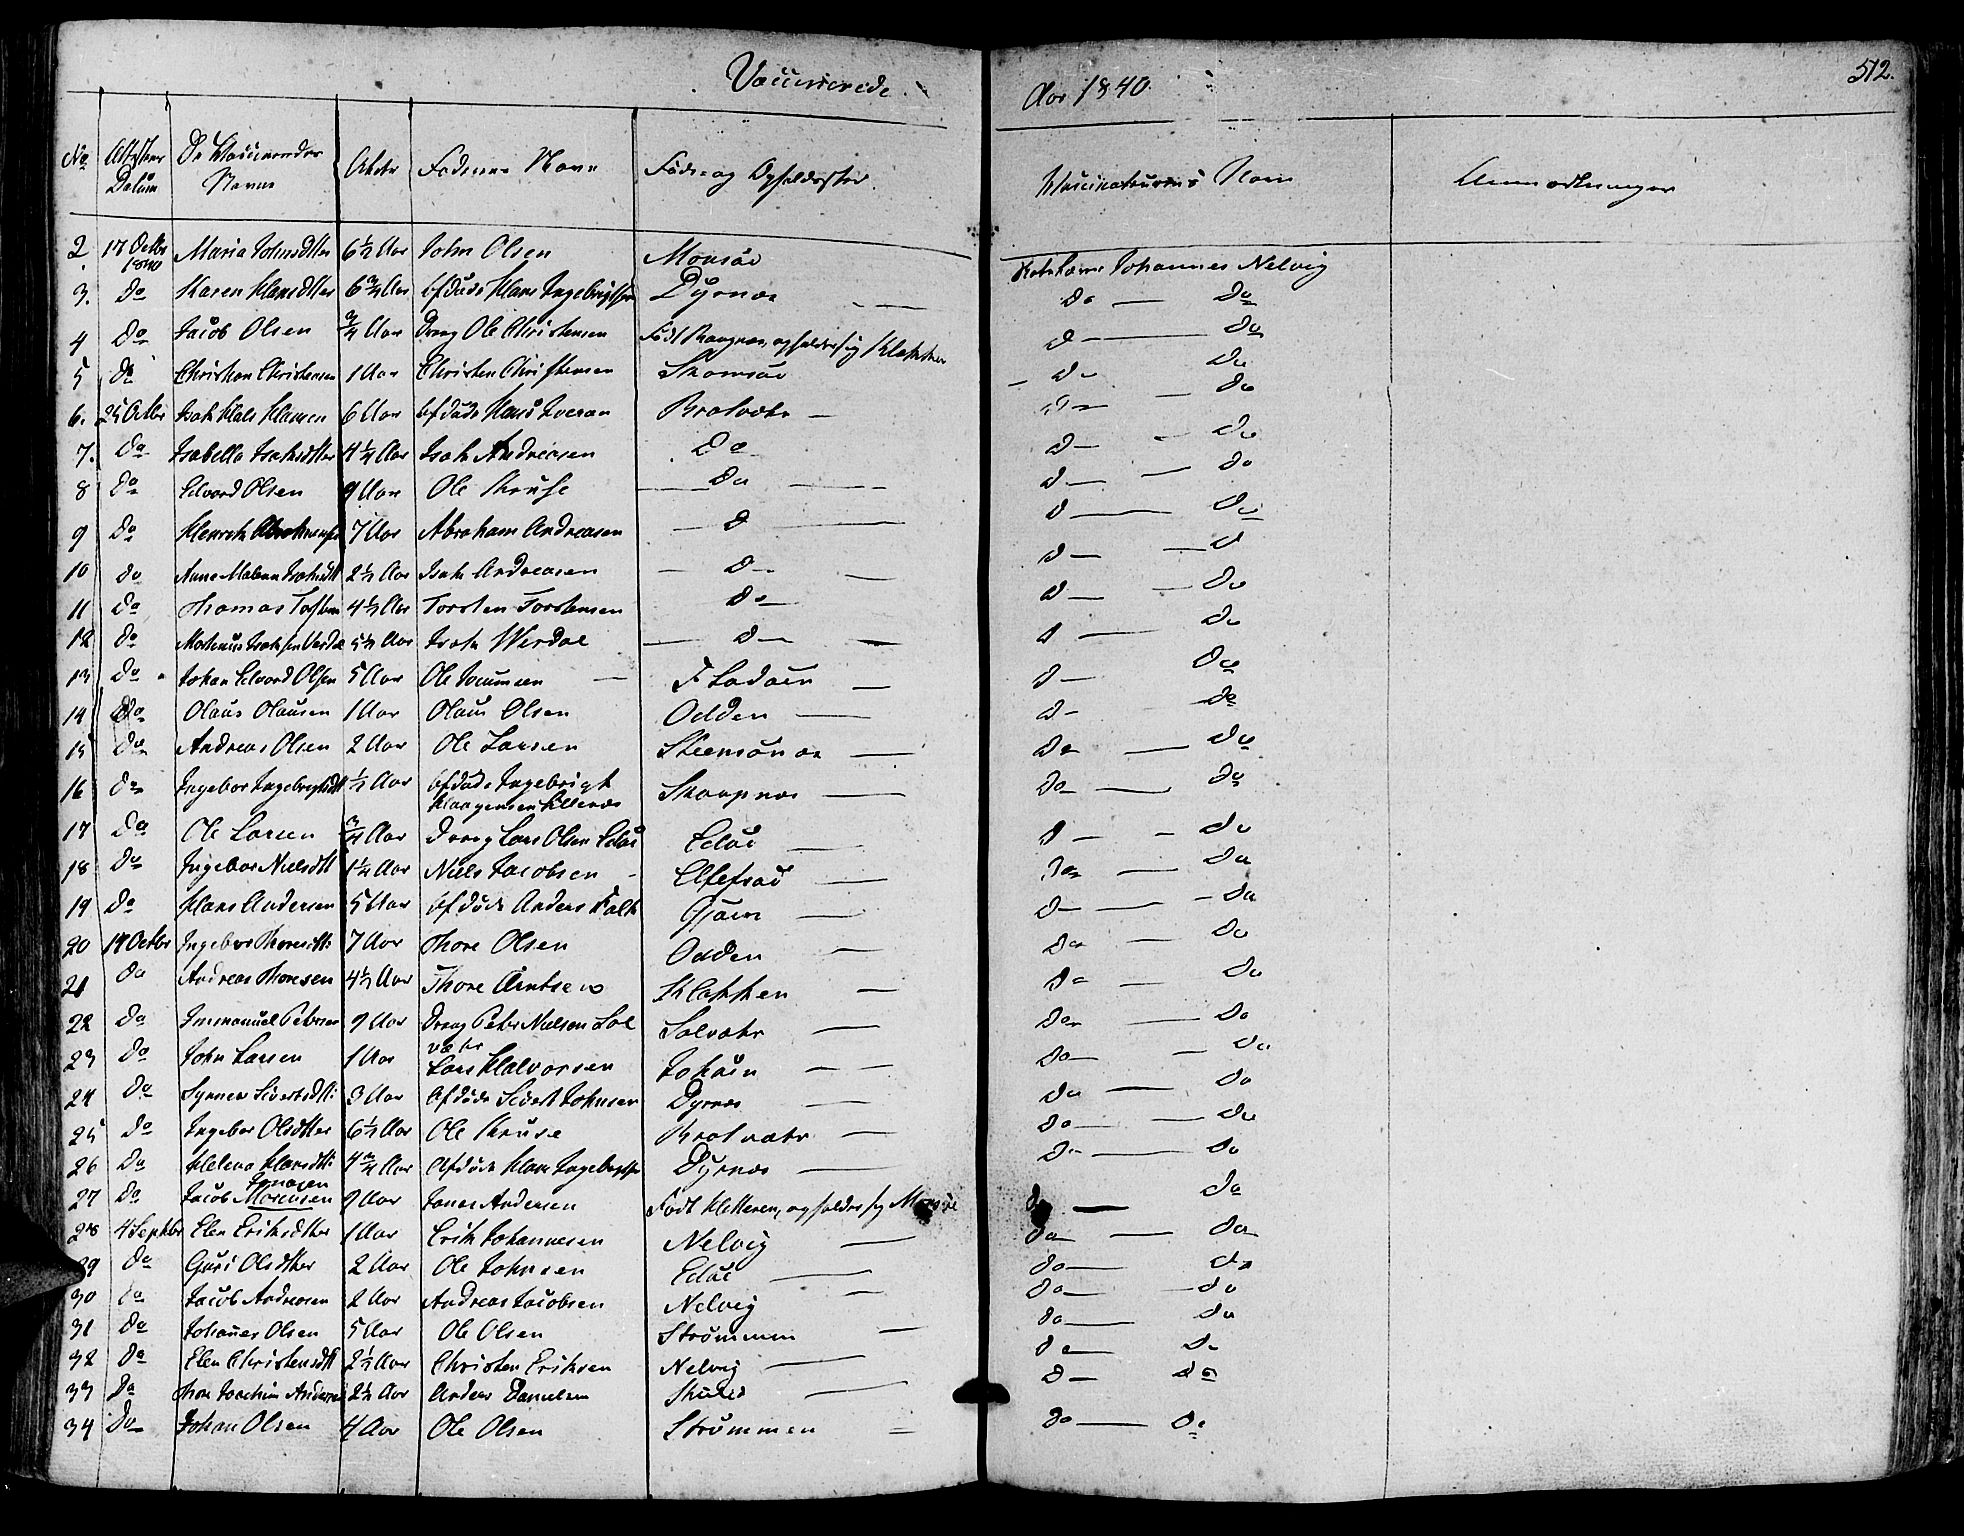 Vaccinerede
Aar 1840.
512.
No Attestens Datum De Vaccineredes Navne Alder Faderens Navn Føde- og Opholdssted. Vaccinateurens Navn Anmærkninger
2. 17 Octbr 1840 Maria Johnsdtter 6½ Aar John Olsen Monsøe Johannes Nelvig
3. Do Maren Hansdtter 6¾ Aar afdøde Hans Ingebrigtsen Dyrnæs Do Do
4 Do Jacob Olsen ¾ Aar Dreng Ole Christensen Født opholder sig Klakken Do Do
5 Do Christian Christensen 1 Aar Christen Christensen Skomsøe Do Do
6. 25 Octbr Isak Hals Hansen 6 Aar afdøde Hans Iversen Bratvær Do Do
7. Do Isabella Isaksdtter 4¼ Aar Isak Andreasen Do Do Do
8 Do Edvard Olsen 9 Aar Ole Kruse Do Do Do
9 Do Henrik Abrahamsen 7 Aar Abraham Andreasen Do Do Do
10 Do Anne Malena Isaksdtt 2½ Aar Isak Andreasen Do Do Do
11 Do Thomas Torstens 4½ Aar Torsten Torstensen Do Do Do
12 Do Mortinus Isaksen Verdal 5½ Aar Isak Werdal Do Do Do
13 Do Johan Edvard Olsen 5 Aar Ole Fladøen Do Do
14 Do Olaus Olausen 1 Aar Olaus Olsen Odden Do Do
15 Do Andreas Olsen 2 Aar Ole Larsen Steensønæs Do Do
16 Do Ingebor Ingebrigtsdtt ½ Aar afdøde Ingebrigt Skarpnæs Do Do
Haagensen
17 Do Ole Larsen ¾ Aar Dreng Lars Olsen Edøe Edøe Do Do
18 Do Ingebor Nielsdtt 1¼ Aar Niels Jacobsen Do Do
19 Do Hans Andersen 5 Aar afdøde Anders Falk Gjøen Do Do
20 19 Octbr Ingebor Thoresdtt 7 Aar Thore Olsen Odden Do Do
21 Do Andreas Thoresen 4½ Aar Thore Arntsen Klakken Do Do
22 Do Immanuel Petersen 9 Aar Dreng Peter Nielsen Sol
vær Solvær Do Do
23 Do John Larsen 1 Aar Lars Halvorsen Johøen Do Do
24 Do Synnev Sivertsdtt: 3 Aar Afdøde Sivert Johnsen Dyrnæs Do Do
25 Do Ingebor Olsdtter 6½ Aar Ole Kruse Bratvær Do Do
26 Do Helena Hansdtt: 4¾ Aar Afdøde Hans Ingebrigtsen Dyrnæs Do Do
27 Do Jacob Jonasen Morensen 9 Aar Jonas Andersen Født opholder sig Monsøe Do Do
28 4 Septbr Elen Eriksdtter 1 Aar Erik Johannesen Nelvig Do Do
29 Do Guri Olsdtter 2 Aar Ole Johnsen Edøe Do Do
30 Do Jacob Andreasen 2 Aar Andreas Jacobsen Nelvig Do Do
31 Do Johannes Olsen 5 Aar Ole Olsen Strømmen Do Do
32 Do Elen Christensdtt 2½ Aar Christen Eriksen Nelvig Do Do
33 Do Thore Joachim Andersen 2½ Aar Anders Danielsen Do Do
34 Do Johan Olsen 4 Aar Ole Olsen Strømmen Do Do